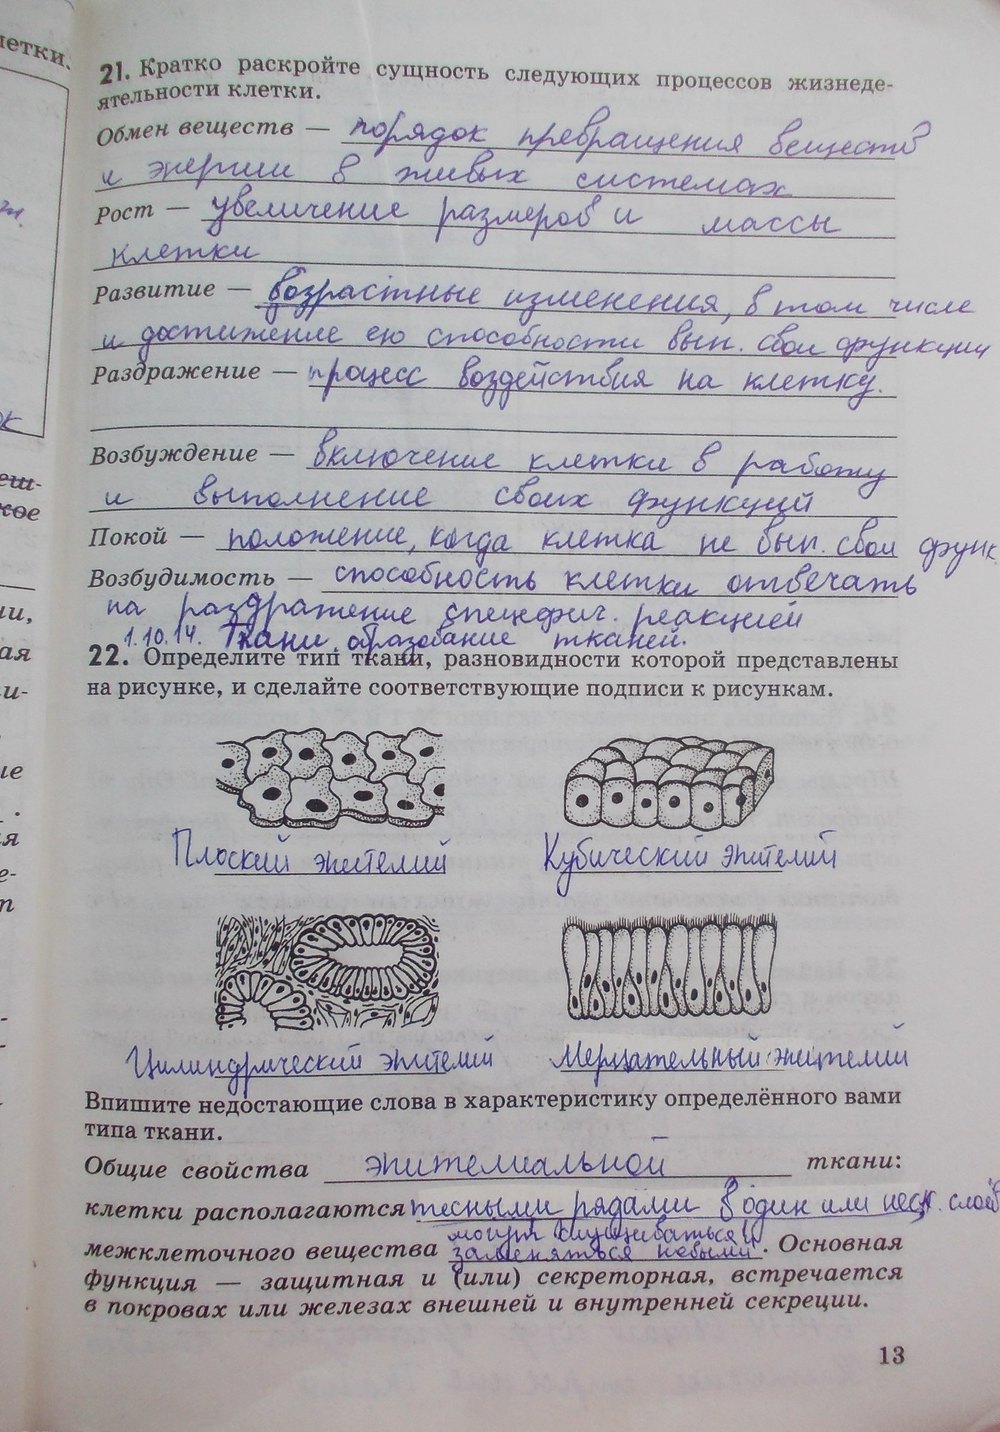 летки.
21. Кратко раскройте сущность следующих процессов жизнеде-
ятельности клетки.
Обмен веществ — порядок превращения веществ
и энергии в живых системах
Рост — увеличение размеров и массы
клетки
Развитие — возрастные изменения, в том числе
и достижение ею способности вып. свои функции
Раздражение — процесс воздействия на клетку.
Возбуждение — включение клетки в работу
и выполнение своих функций
Покой — положение, когда клетка не вып. свои функ.
Возбудимость — способность клетки отвечать
на раздражение специфич. реакцией
1.10.14. Ткани, образование тканей.
22. Определите тип ткани, разновидности которой представлены
на рисунке, и сделайте соответствующие подписи к рисункам.
Плоский эпителий
Кубический эпителий
Цилиндрический эпителий
Мерцательный эпителий
Впишите недостающие слова в характеристику определённого вами
типа ткани.
Общие свойства эпителиальной ткани:
клетки располагаются тесными рядами в один или неск. слоёв
могут слущиваться и
межклеточного вещества заменяться новыми. Основная
функция — защитная и (или) секреторная, встречается
в покровах или железах внешней и внутренней секреции.
13